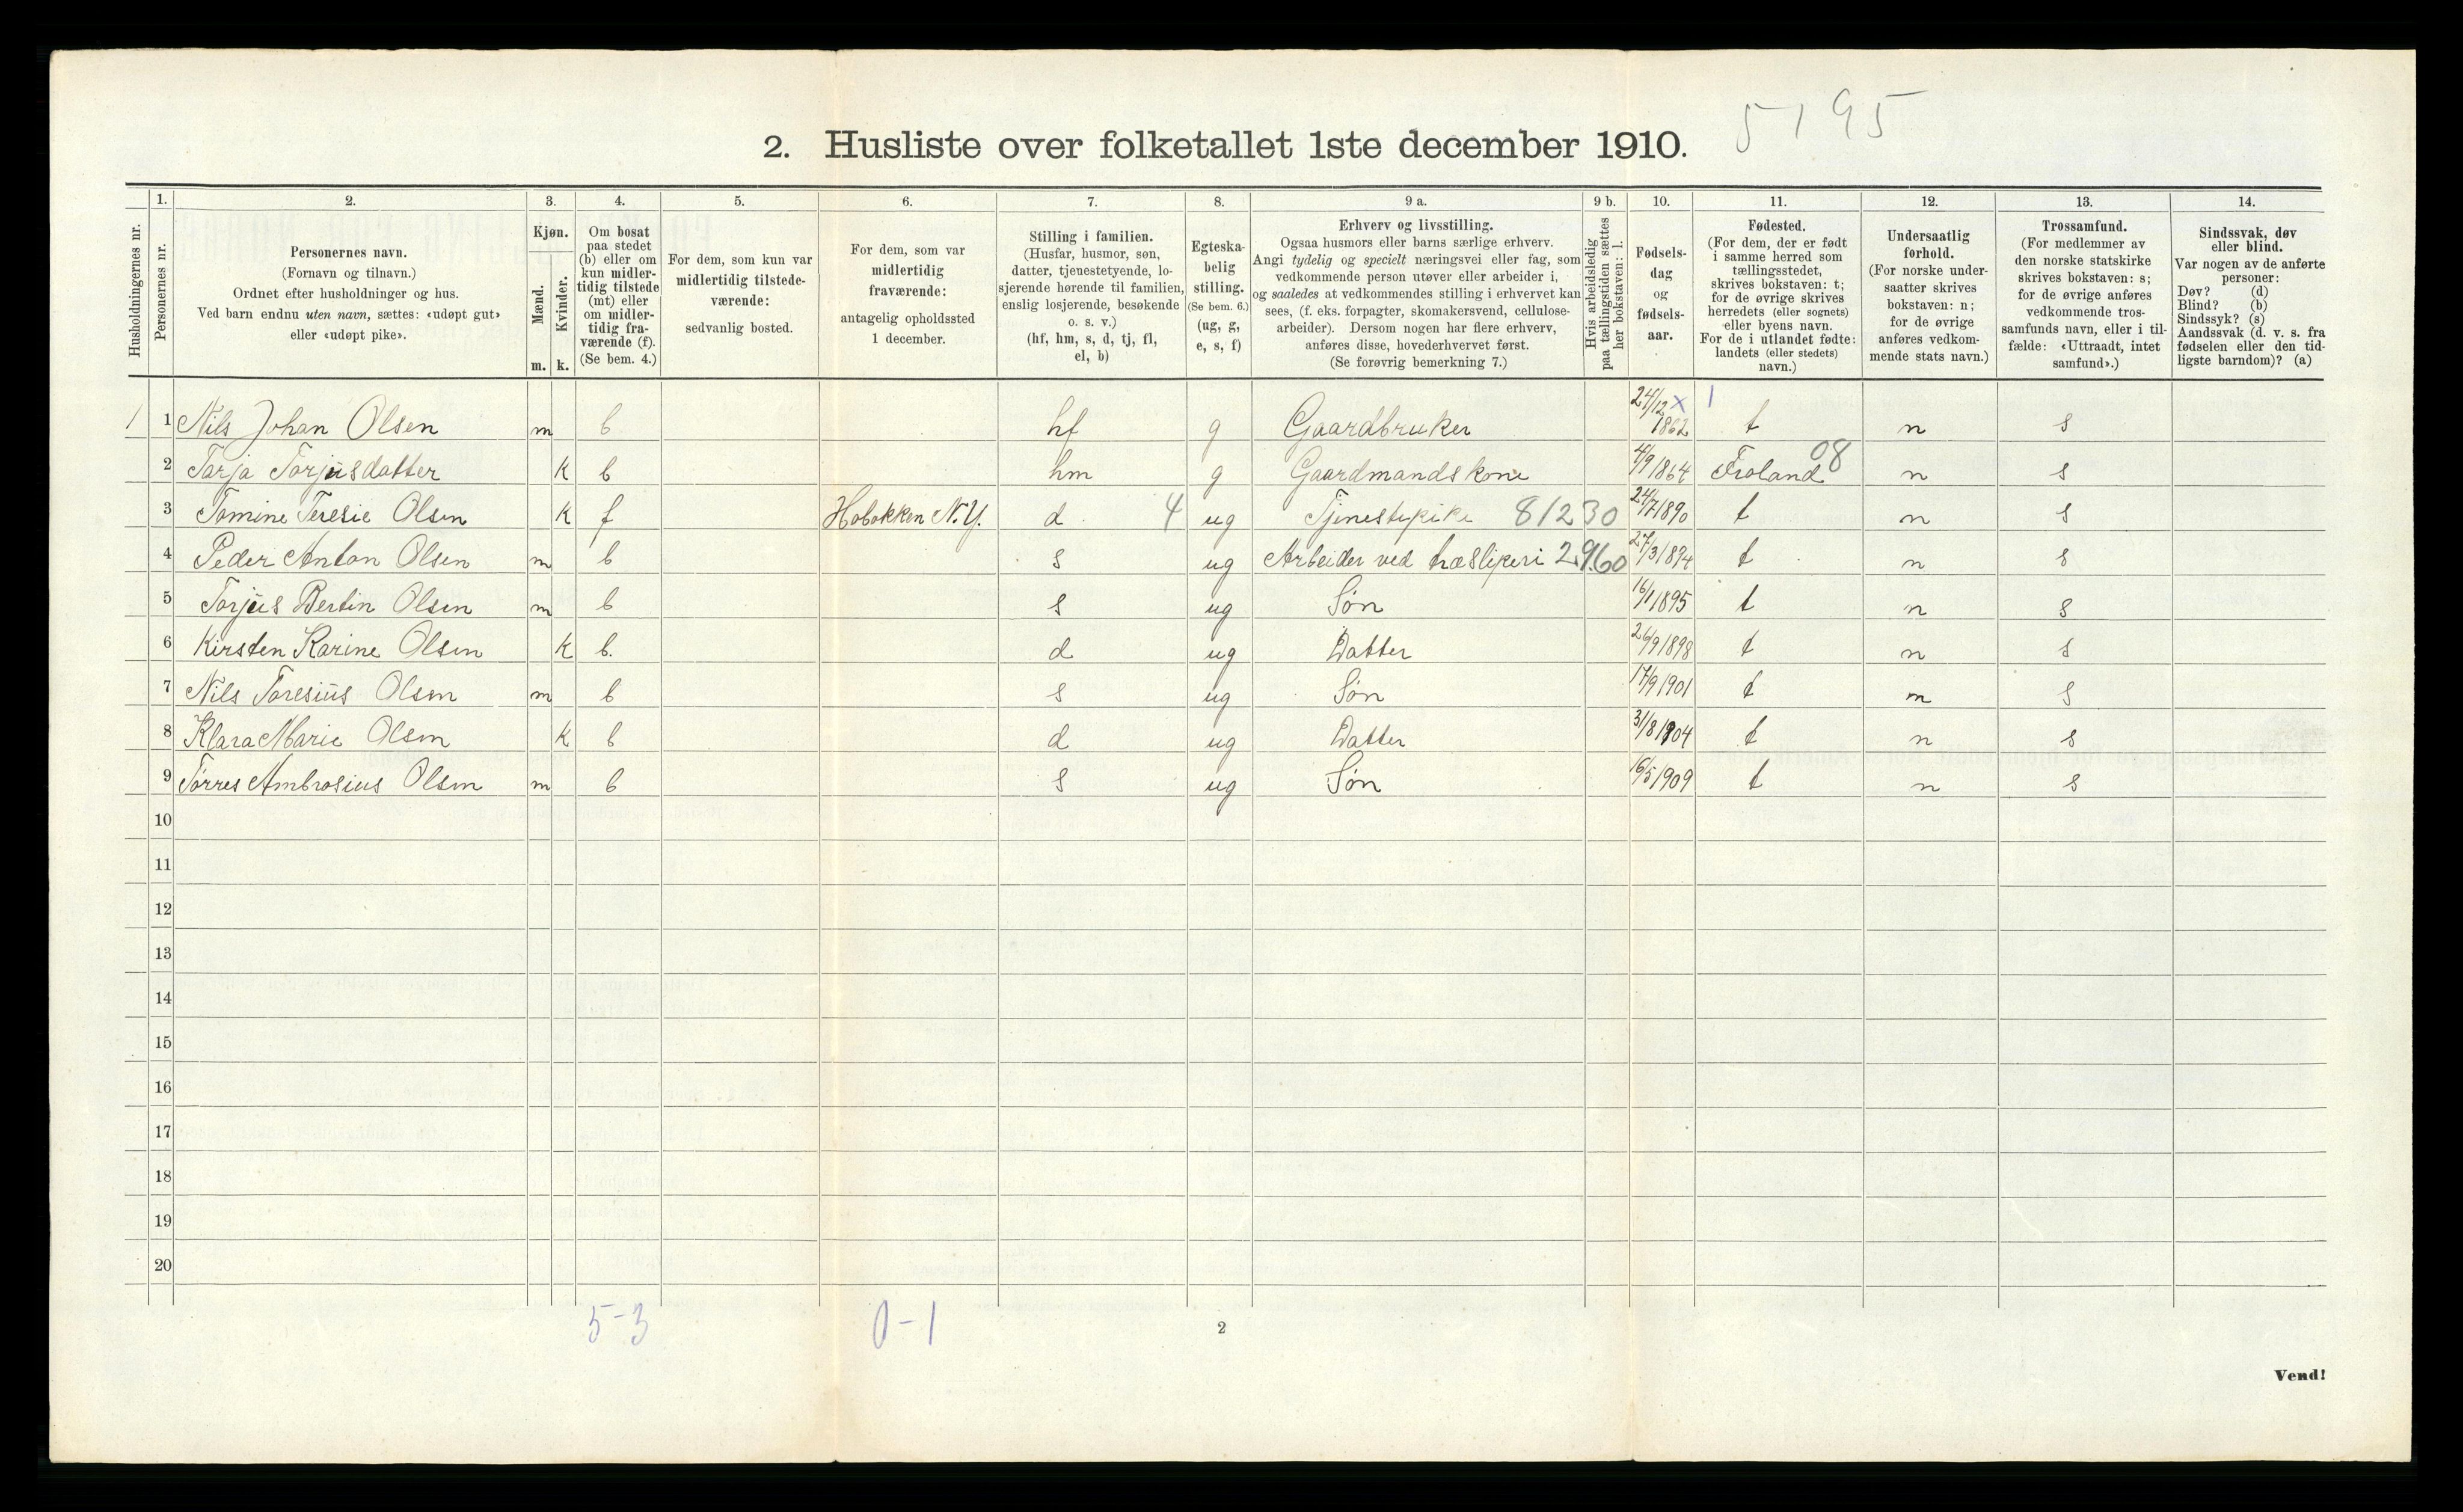 5195
2. Husliste over folketallet 1ste december 1910.
Husholdningernes nr.
1. Personernes nr.
2. Personernes navn.
(Fornavn og tilnavn.)
Ordnet efter husholdninger og hus.
Ved barn endnu uten navn, sættes: «udøpt gut»
eller «udøpt pike».
3. Kjøn.
Mænd. m.
Kvinder. k.
4. Om bosat
paa stedet
(b) eller om
kun midler-
tidig tilstede
(mt) eller
om midler-
tidig fra-
værende (f).
(Se bem. 4.)
5. For dem, som kun var
midlertidig tilstede-
værende:
sedvanlig bosted.
6. For dem, som var
midlertidig
fraværende:
antagelig opholdssted
1 december.
7. Stilling i familien.
(Husfar, husmor, søn,
datter, tjenestetyende, lo-
sjerende hørende til familien,
enslig losjerende, besøkende
o. s. v.)
(hf, hm, s, d, tj, fl,
el, b)
8. Egteska-
belig
stilling.
(Se bem. 6.)
(ug, g,
e, s, f)
9 a. Erhverv og livsstilling.
Ogsaa husmors eller barns særlige erhverv.
Angi tydelig og specielt næringsvei eller fag, som
vedkommende person utøver eller arbeider i,
og saaledes at vedkommendes stilling i erhvervet kan
sees, (f. eks. forpagter, skomakersvend, cellulose-
arbeider). Dersom nogen har flere erhverv,
anføres disse, hovederhvervet først.
(Se forøvrig bemerkning 7.)
9 b. Hvis arbeidsledig
paa tællingstiden sættes
her bokstaven: l.
10. Fødsels-
dag
og
fødsels-
aar.
11. Fødested.
(For dem, der er født
i samme herred som
tællingsstedet,
skrives bokstaven: t;
for de øvrige skrives
herredets (eller sognets)
eller byens navn.
For de i utlandet fødte:
landets (eller stedets)
navn.)
12. Undersaatlig
forhold.
(For norske under-
saatter skrives
bokstaven: n;
for de øvrige
anføres vedkom-
mende stats navn.)
13. Trossamfund.
(For medlemmer av
den norske statskirke
skrives bokstaven: s;
for de øvrige anføres
vedkommende tros-
samfunds navn, eller i til-
fælde: «Uttraadt, intet
samfund».)
14. Sindssvak, døv
eller blind.
Var nogen av de anførte
personer:
Døv? (d)
Blind? (b)
Sindssyk? (s)
Aandssvak (d. v. s. fra
fødselen eller den tid-
ligste barndom)? (a)
1 1 Nils Johan Olsen m b hf g Gaardbruker 24/12 x 1862 1 t n s
2 Tarja Torjusdatter k b hm g Gaardmandskone 4/9 1864 Froland 08 n s
3 Tomine Teresie Olsen k f Hobokken N.Y. d 4 ug Tjenestepike 81230 24/7 1890 t n s
4 Peder Anton Olsen m b s ug Arbeider ved træsliperi 2960 27/3 1894 t n s
5 Torjus Bertin Olsen m b s ug Søn 16/1 1895 t n s
6 Kirsten Karine Olsen k b. d ug Datter 26/9 1898 t n s
7 Nils Toresius Olsen m b s ug Søn 17/9 1901 t n s
8 Klara Marie Olsen k b d ug Datter 31/8 1904 t n s
9 Tørres Ambrosius Olsen m b s ug Søn 16/5 1909 t n s
10
11
12
13
14
15
16
17
18
19
20
5-3 0-1
2
Vend!